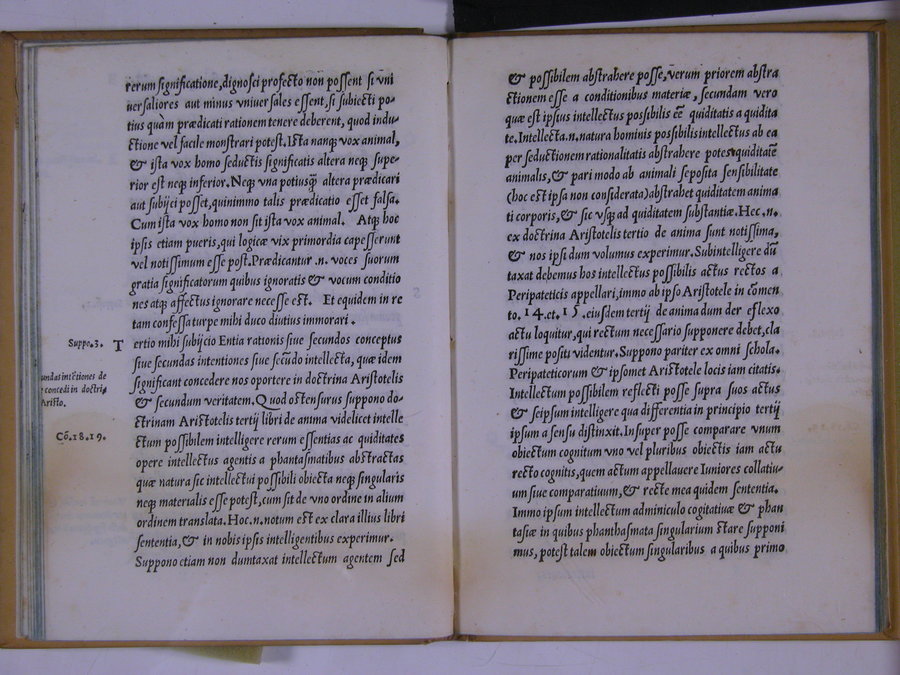 rerum significatione, dignosci profecto non possent si vni
uersaliores aut minus vniuersales essent, si subiecti po-
tius quàm prædicati rationem tenere deberent, quod indu-
ctione vel facile monstrari potest. Ista nanq; vox animal,
& ista vox homo seductis significatis altera neq; supe-
rior est neq; inferior. Neq; vna potiusq̃ altera prædicari
aut subijci posset, quinimmo talis prædicatio esset falsa.
Cum ista vox homo non sit ista vox animal. Atq; hoc
ipsis etiam pueris, qui logicæ vix primordia capesserunt
vel notissimum esse post. Prædicantur .n. voces suorum
gratia significatorum quibus ignoratis & vocum conditio
nes atq; affectus ignorare necesse est. Et equidem in re
tam confessa turpe mihi duco diutius immorari.
Suppo.3. Tertio mihi subijcio Entia rationis siue secundos conceptus
siue secundas intentiones siue secũdo intellecta, quæ idem
undas intẽtiones de
significant concedere nos oportere in doctrina Aristotelis
concedi in doctri,
& secundum veritatem. Quod ostensurus suppono do-
Aristo.
ctrinam Aristotelis tertij libri de anima videlicet intelle
Cõ.18.19.
ctum possibilem intelligere rerum essentias ac quiditates
opere intellectus agentis a phantasmatibus abstractas
quæ natura sic intellectui possibili obiecta neq; singularis
neq; materialis esse potest, cum sit de vno ordine in alium
ordinem translata. Hoc .n. notum est ex clara illius libri
sententia, & in nobis ipsis intelligentibus experimur.
Suppono etiam non dumtaxat intellectum agentem sed
& possibilem abstrahere posse, verum priorem abstra
ctionem esse a conditionibus materiæ, secundam vero
quæ est ipsius intellectus possibilis eẽ quiditatis a quidita
te. Intellecta .n. natura hominis possibilis intellectus ab ea
per seductionem rationalitatis abstrahere potest quiditatẽ
animalis, & pari modo ab animali seposita sensibilitate
(hoc est ipsa non considerata) abstrahet quiditatem anima
ti corporis, & sic vsq; ad quiditatem substantiæ. Hec .n.
ex doctrina Aristotelis tertio de anima sunt notissima,
& nos ipsi dum volumus experimur. Subintelligere dũ
taxat debemus hos intellectus possibilis actus rectos a
Peripateticis appellari, immo ab ipso Aristotele in cõmen
to. 14. et. 15. eiusdem tertij de anima dum de reflexo
actu loquitur, qui rectum necessario supponere debet, cla
rissime positi videntur. Suppono pariter ex omni schola.
Peripateticorum & ipsomet Aristotele locis iam citatis.
Intellectum possibilem reflecti posse supra suos actus
& seipsum intelligere qua differentia in principio tertij
ipsum a sensu distinxit. Insuper posse comparare vnum
obiectum cognitum vno vel pluribus obiectis iam actu
recto cognitis, quem actum appellauere Iuniores collatiu-
um siue comparatiuum, & recte mea quidem sententia.
Immo ipsum intellectum adminiculo cogitatiuæ & phan
tasiæ in quibus phanthasmata singularium stare supponi
mus, potest talem obiectum singularibus a quibus primo